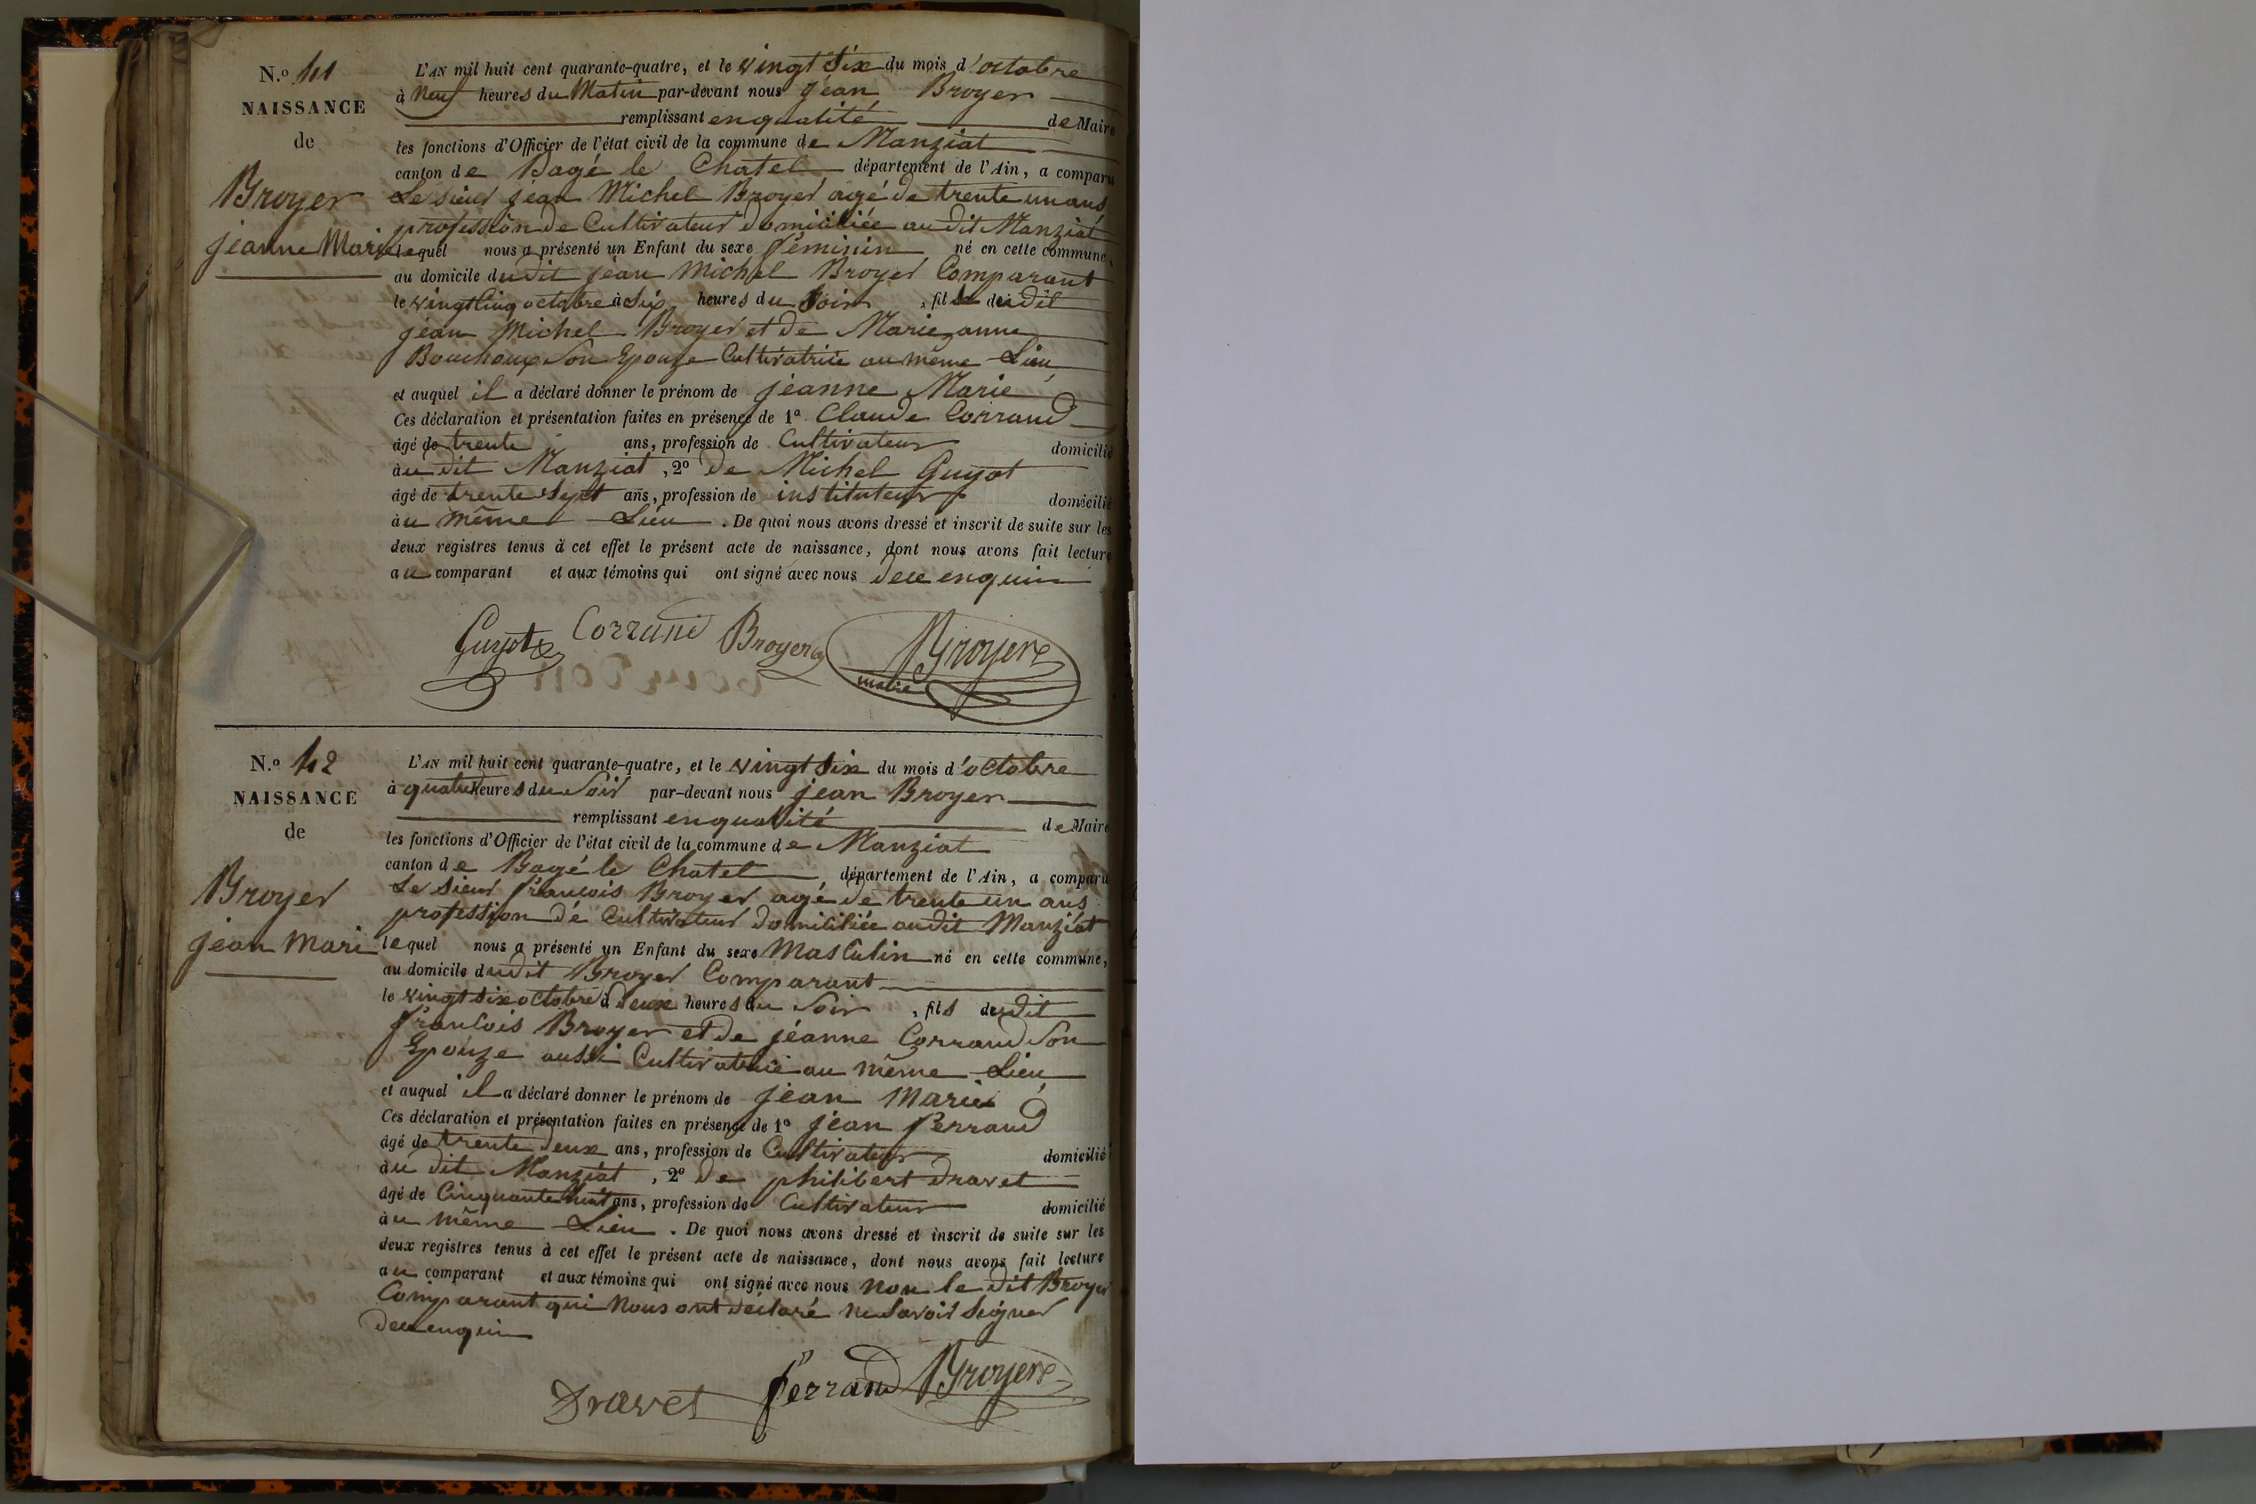 N.º 41
NAISSANCE
de
Broyer
jeanne Marie
L'AN mil huit cent quarante-quatre, et le vingt Six du mois d'octobre
à neuf heures du Matin par-devant nous jean Broyer
remplissant enqualité de Maire
les fonctions d'Officier de l'état civil de la commune de Manziat
canton de Bagé le Chatel département de l'Ain, a comparu
Le sieur jean Michel Broyer agé de trente un ans
profession de Cultivateur domiciliée au dit Manziat
lequel nous a présenté un Enfant du sexe féminin né en cette commune,
au domicile dudit jean Michel Broyer Comparant
le vingt Cinq octobre à Six heures du Soir, fille dudit
jean Michel Broyer et de Marie anne
Bouchoux Son Epouze Cultivatrice au même Lieu
et auquel il a déclaré donner le prénom de jeanne Marie
Ces déclaration et présentation faites en présence de 1º Claude Corrand
âgé de trente ans, profession de Cultivateur domicilié
au dit Manziat, 2º de Michel Guyot
âgé de trente Sept ans, profession de instituteur domicilié
au même Lieu. De quoi nous avons dressé et inscrit de suite sur les
deux registres tenus à cet effet le présent acte de naissance, dont nous avons fait lecture
au comparant et aux témoins qui ont signé avec nous dece enquin
Guyot Corrand Broyer Broyer
maire
N.º 42
NAISSANCE
de
Broyer
jean Mari
L'AN mil huit cent quarante-quatre, et le vingt Six du mois d'octobre
à quatre heures du Soir par-devant nous jean Broyer
remplissant enqualité de Maire
les fonctions d'Officier de l'état civil de la commune de Manziat
canton de Bagé le Chatel département de l'Ain, a comparu
Le Sieur françois Broyer agé de trente un ans
profession de Cultivateur domiciliée audit Manziat
lequel nous a présenté un Enfant du sexe Masculin né en cette commune,
au domicile dudit Broyer Comparant
le vingt Six octobre à deux heures du Soir, fils dudit
françois Broyer et de jéanne Corrand Son
Epouze aussi Cultivatrice au même Lieu
et auquel il a déclaré donner le prénom de jean Marie
Ces déclaration et présentation faites en présence de 1º jean ferrand
âgé de trente deux ans, profession de Cultivateur domicilié
au dit Manziat, 2º de philibert dravet
âgé de Cinquante huit ans, profession de Cultivateur domicilié
au même Lieu. De quoi nous avons dressé et inscrit de suite sur les
deux registres tenus à cet effet le présent acte de naissance, dont nous avons fait lecture
au comparant et aux témoins qui ont signé avec nous non le dit Broyer
Comparant qui Nous ont déclaré ne Savoir Signer
dece enquin
Dravet ferrand Broyer